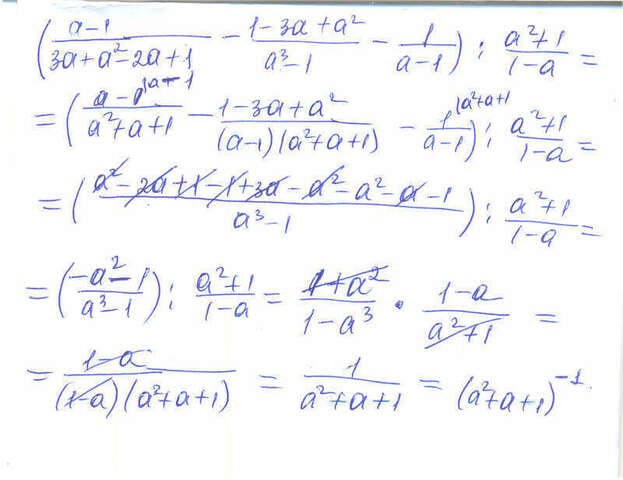 ( (a-1)/(3a+a²-2a+1) - (1-3a+a²)/(a³-1) - 1/(a-1) ) : (a²+1)/(1-a) =
= ( (a-1)/(a²+a+1) - (1-3a+a²)/((a-1)(a²+a+1)) - 1/(a-1) ) : (a²+1)/(1-a) =
= ( (a²-2a+1-1+3a-a²-a²-a-1)/(a³-1) ) : (a²+1)/(1-a) =
= ( (-a²-1)/(a³-1) ) : (a²+1)/(1-a) = (1+a²)/(1-a³) · (1-a)/(a²+1) =
= (1-a)/((1-a)(a²+a+1)) = 1/(a²+a+1) = (a²+a+1)⁻¹.